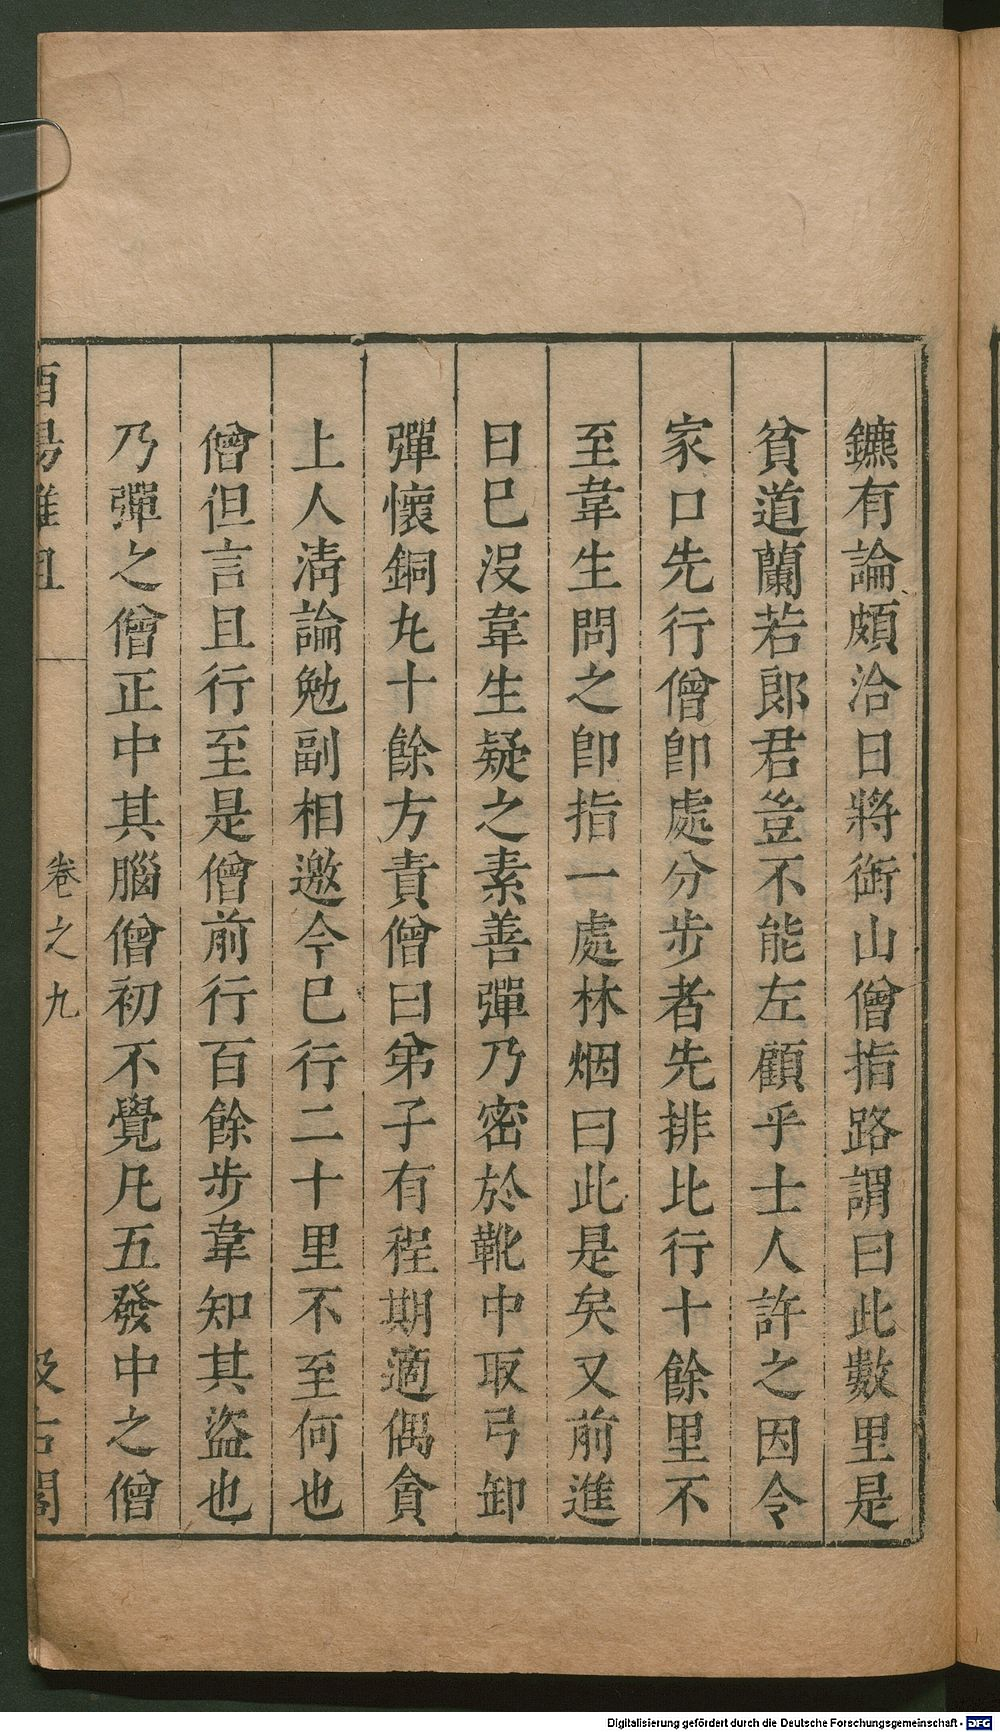 鑣有論頗洽日將銜山僧指路謂曰此數里是
貧道蘭若郎君豈不能左顧乎士人許之因令
家口先行僧卽處分步者先排比行十餘里不
至韋生問之卽指一處林烟曰此是矣又前進
日已沒韋生疑之素善彈乃密於靴中取弓卸
彈懷銅丸十餘方責僧曰弟子有程期適偶貪
上人清論勉副相邀今已行二十里不至何也
僧但言且行至是僧前行百餘步韋知其盜也
乃彈之僧正中其腦僧初不覺凡五發中之僧
酉陽雜俎
卷之九
汲古閣
Digitalisierung gefördert durch die Deutsche Forschungsgemeinschaft - DFG